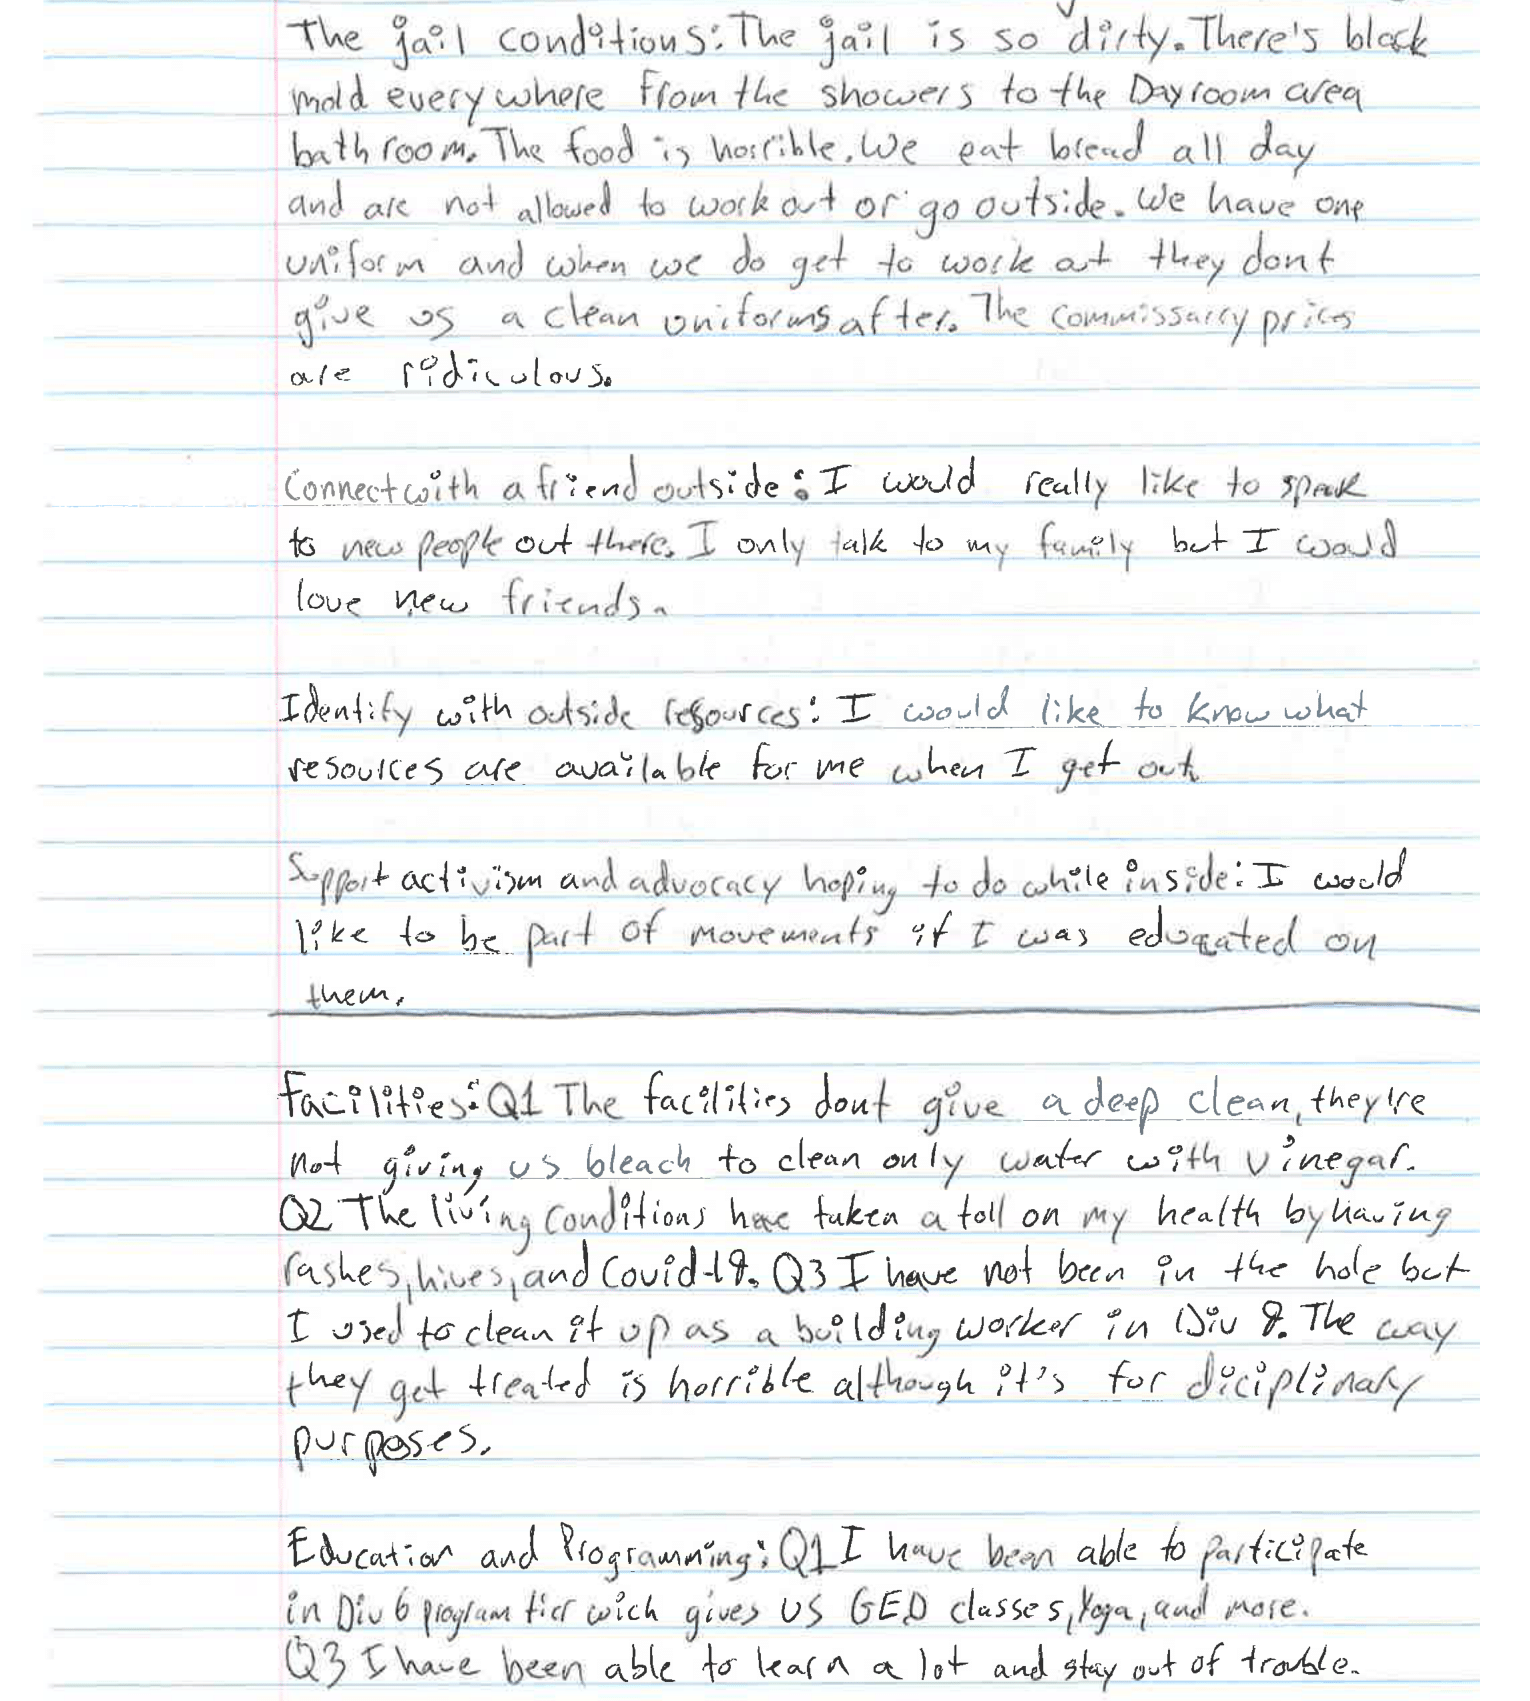 The jail conditions: The jail is so dirty. There's black
mold everywhere from the showers to the Dayroom area
bathroom. The food is horrible. We eat bread all day
and are not allowed to work out or go outside. We have one
uniform and when we do get to work out they dont
give us a clean uniforms after. The commissarry prices
are ridiculous.
Connect with a friend outside: I would really like to speak
to new people out there. I only talk to my family but I would
love new friends.
Identify with outside resources: I would like to know what
resources are available for me when I get out.
Support activism and advocacy hoping to do while inside: I would
like to be part of movements if I was educated on
them.
Facilities: Q1 The facilities dont give a deep clean, they're
not giving us bleach to clean only water with vinegar.
Q2 The living conditions have taken a toll on my health by having
rashes, hives, and Covid-19. Q3 I have not been in the hole but
I used to clean it up as a building worker in Div 9. The way
they get treated is horrible although it's for diciplinary
purposes.
Education and Programming: Q1 I have been able to participate
in Div 6 program tier wich gives us GED classes, Yoga, and more.
Q3 I have been able to learn a lot and stay out of trouble.